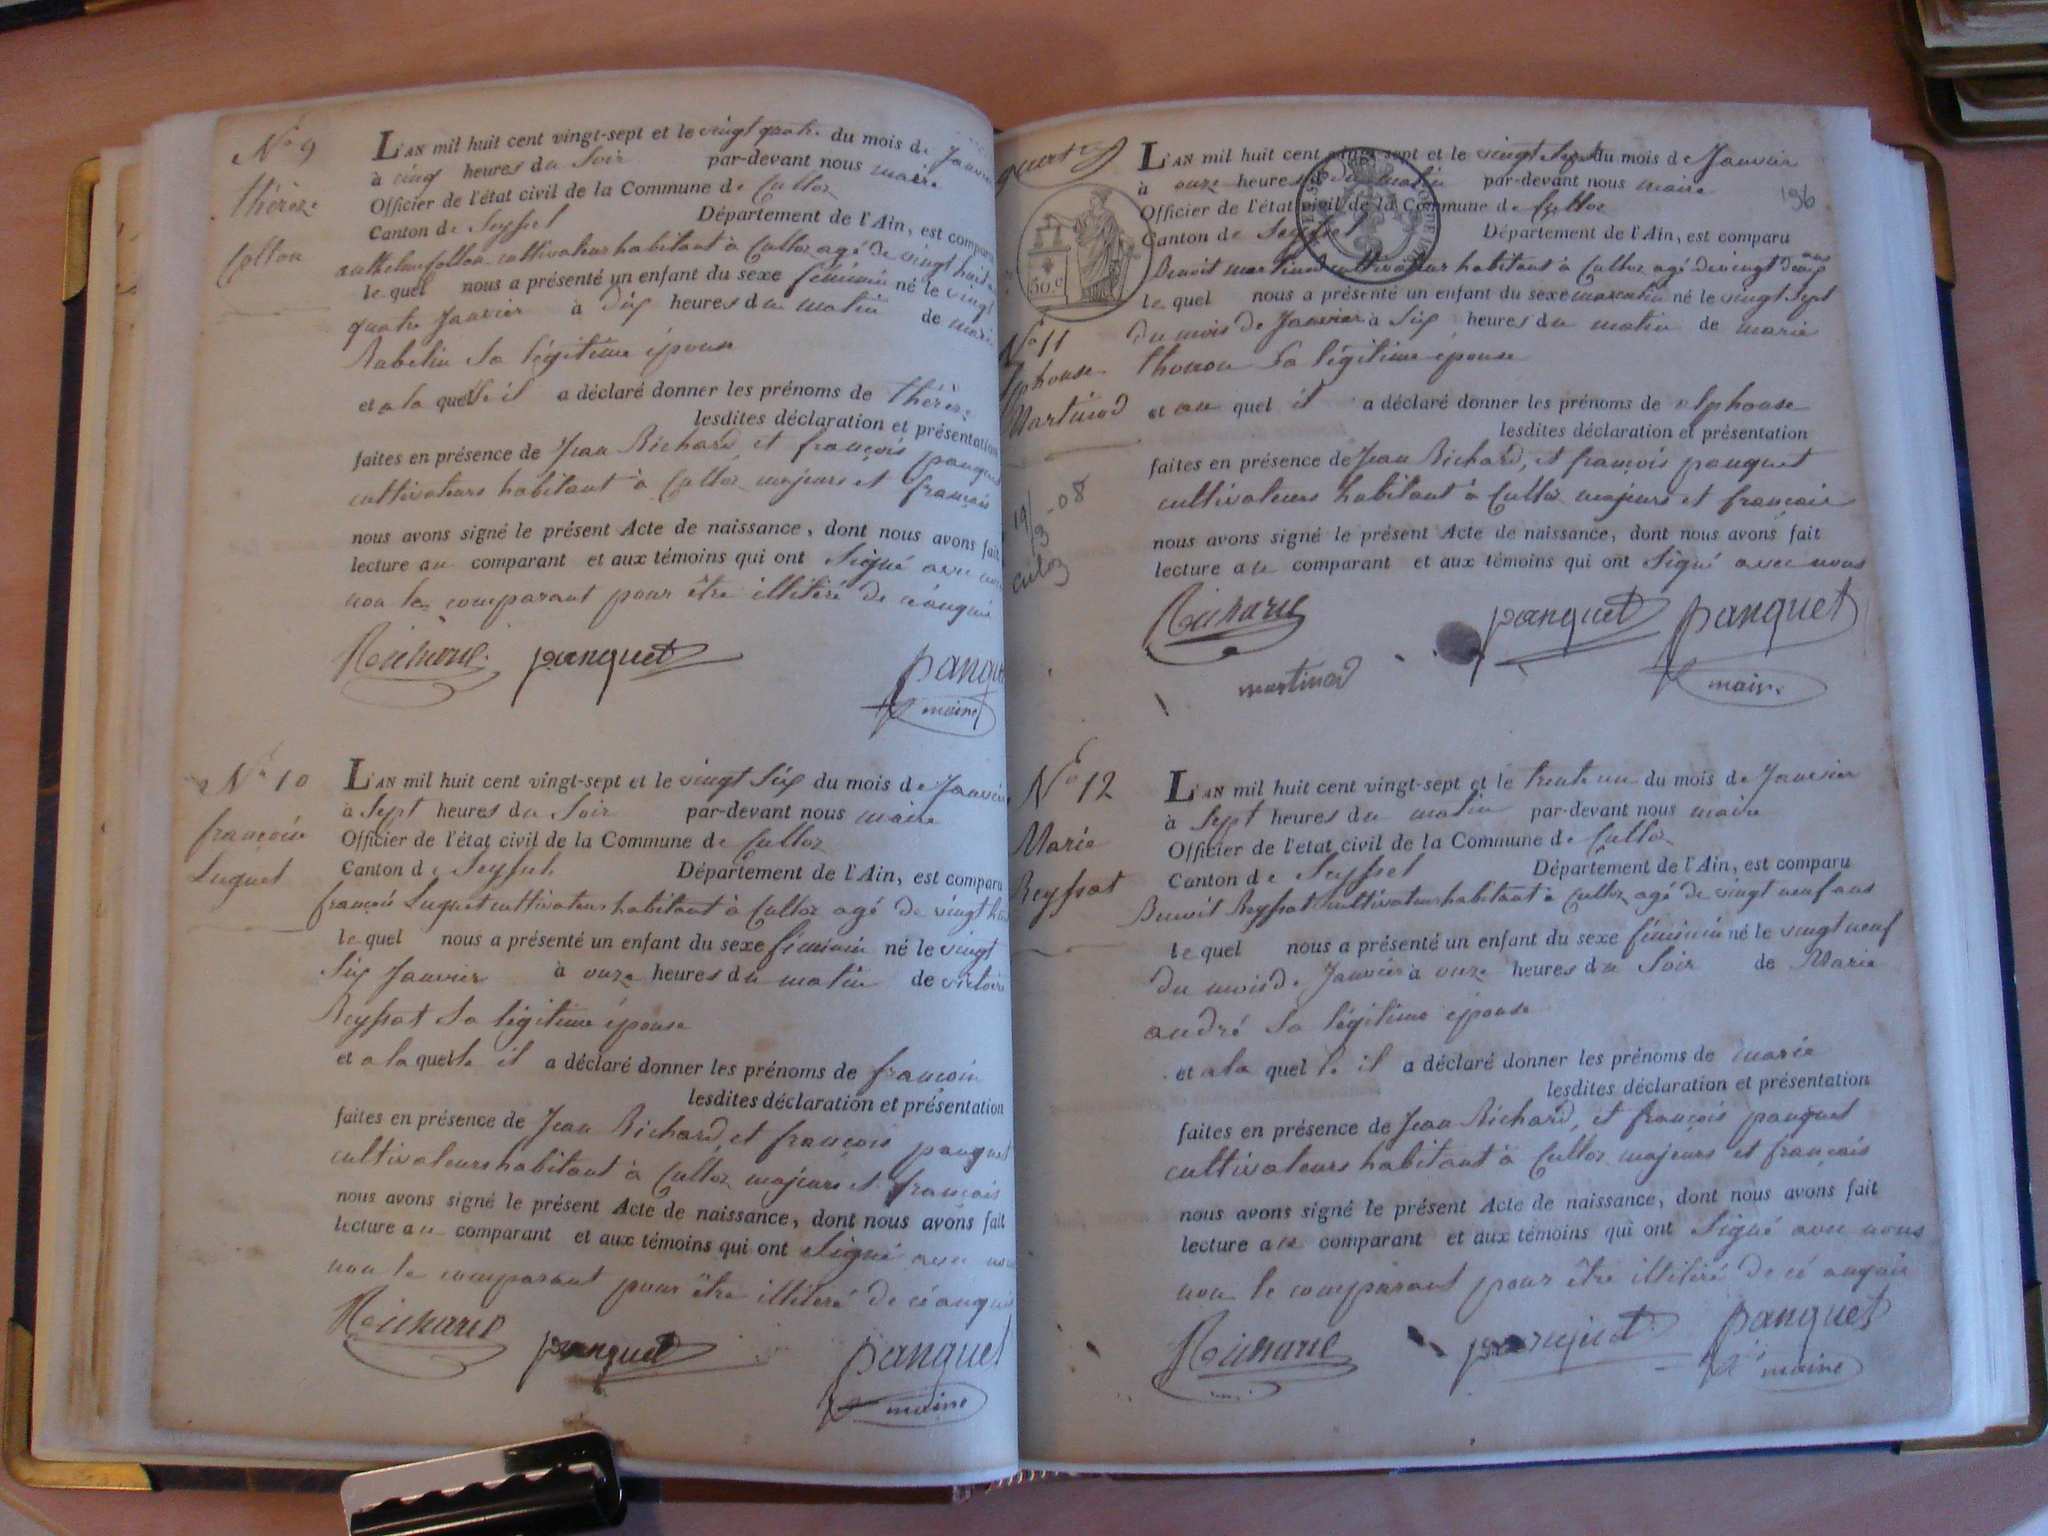 No 9
thérèze
follon
L'AN mil huit cent vingt-sept et le vingt quatre du mois de Janvier
à cinq heures du Soir par-devant nous maire
Officier de l'état civil de la Commune de Culloz
Canton de Seyssel Département de l'Ain, est comparu
anthelme follon cultivateur habitant à Culloz agé de vingt huit
le quel nous a présenté un enfant du sexe féminin né le vingt
quatre Janvier à dix heures du matin de marie
Rabelin Sa légitime épouse
et a la quelle il a déclaré donner les prénoms de thérèze
lesdites déclaration et présentation
faites en présence de Jean Richard et françois panquet
cultivateurs habitant à Culloz majeurs et français
nous avons signé le présent Acte de naissance, dont nous avons fait
lecture au comparant et aux témoins qui ont Signé avec nous
non le comparant pour être illitéré de ce enquis
Richard panquet panquet
maire
No 10
françoise
Luquet
L'AN mil huit cent vingt-sept et le vingt Six du mois de Janvier
à Sept heures du Soir par-devant nous maire
Officier de l'état civil de la Commune de Culloz
Canton de Seyssel Département de l'Ain, est comparu
françois Luquet cultivateur habitant à Culloz agé de vingt
le quel nous a présenté un enfant du sexe féminin né le vingt
Six Janvier à onze heures du matin de victoire
Reyssat Sa légitime épouse
et a la quelle il a déclaré donner les prénoms de
lesdites déclaration et présentation
faites en présence de Jean Richard et françois panquet
cultivateurs habitant à Culloz majeurs et français
nous avons signé le présent Acte de naissance, dont nous avons fait
lecture au comparant et aux témoins qui ont Signé avec nous
non le comparant pour être illiteré de ce enquis
Richard panquet panquet
maire
196
30.c
No 11
alphonse
Martinod
19/3-08
Culoz
L'AN mil huit cent vingt-sept et le vingt Sept du mois de Janvier
à onze heures du matin par-devant nous maire
Officier de l'état civil de la Commune de Culloz
Canton de Seyssel Département de l'Ain, est comparu
Benoit martinod cultivateur habitant à Culloz agé de vingt deux ans
le quel nous a présenté un enfant du sexe masculin né le vingt Sept
du mois de Janvier à Six heures du matin de marie
thonon Sa légitime épouse
et au quel il a déclaré donner les prénoms de alphonse
lesdites déclaration et présentation
faites en présence de Jean Richard, et françois panquet
cultivateurs habitant à Culloz majeurs et français
nous avons signé le présent Acte de naissance, dont nous avons fait
lecture au comparant et aux témoins qui ont Signé avec nous
Richard panquet panquet
martinod maire
No 12
Marie
Reyssat
L'AN mil huit cent vingt-sept et le trente un du mois de Janvier
à Sept heures du matin par-devant nous maire
Officier de l'etat civil de la Commune de Culloz
Canton de Seyssel Département de l'Ain, est comparu
Benoit Reyssat cultivateur habitant à Culloz agé de vingt neuf ans
le quel nous a présenté un enfant du sexe féminin né le vingt neuf
du mois de Janvier à onze heures du Soir de Marie
andré Sa légitime épouse
et a la quelle il a déclaré donner les prénoms de marie
lesdites déclaration et présentation
faites en présence de Jean Richard, et françois panquet
cultivateurs habitant à Culloz majeurs et français
nous avons signé le présent Acte de naissance, dont nous avons fait
lecture au comparant et aux témoins qui ont Signé avec nous
non le comparant pour être illitéré de ce enquis
Richard panquet panquet
maire